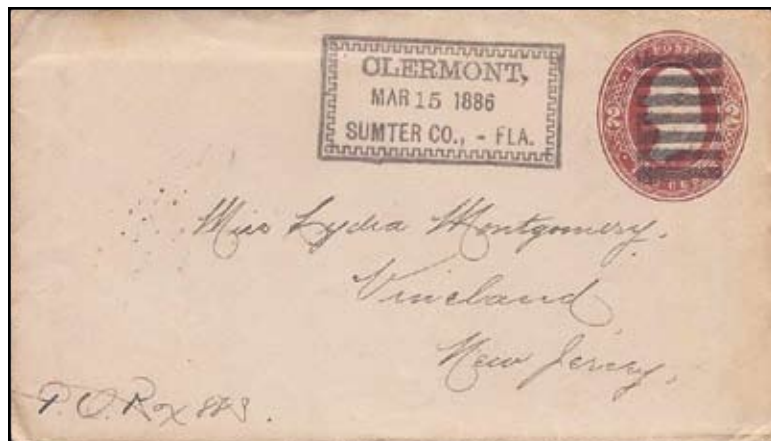 CLERMONT,
MAR 15 1886
SUMTER CO., - FLA.
2 2
Miss Lydia Montgomery.
Vineland
New Jersey.
P.O. Box